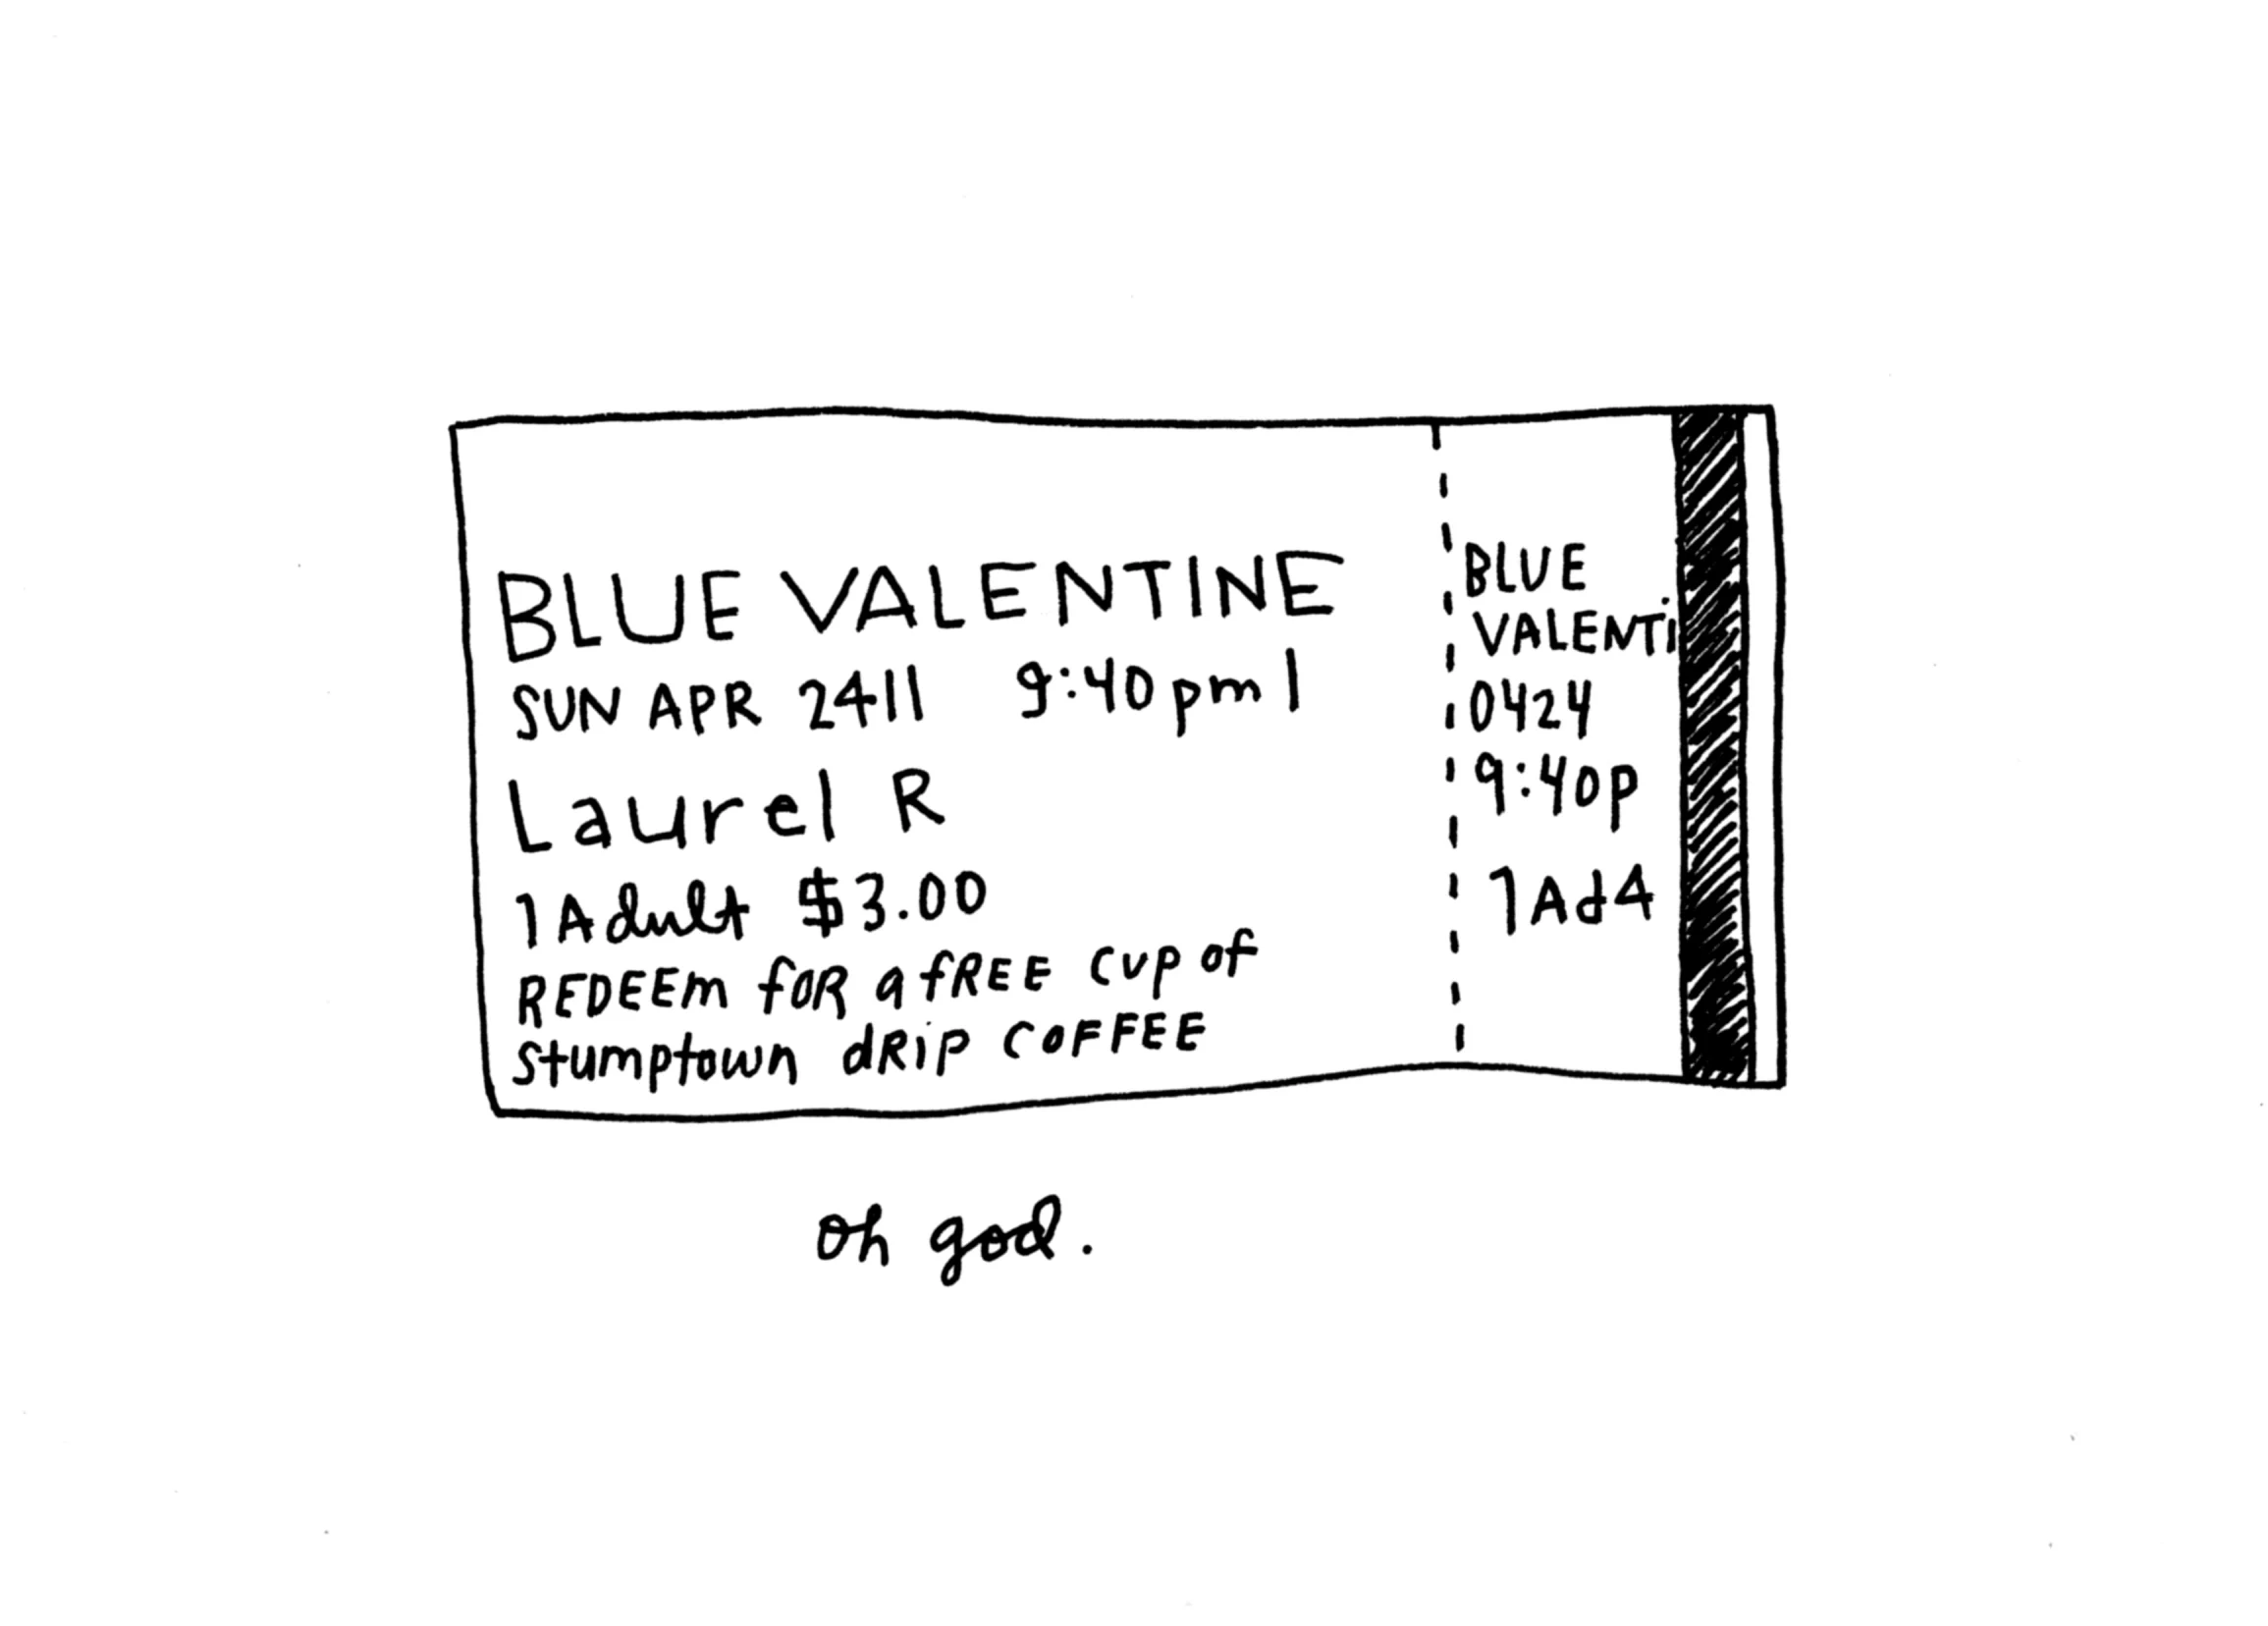 BLUE VALENTINE
SUN APR 2411 9:40pm 1
Laurel R
1 Adult $3.00
REDEEM foR a fREE cup of
stumptown dRip COFFEE
BLUE
VALENTi
0424
9:40p
1Ad4
oh god.